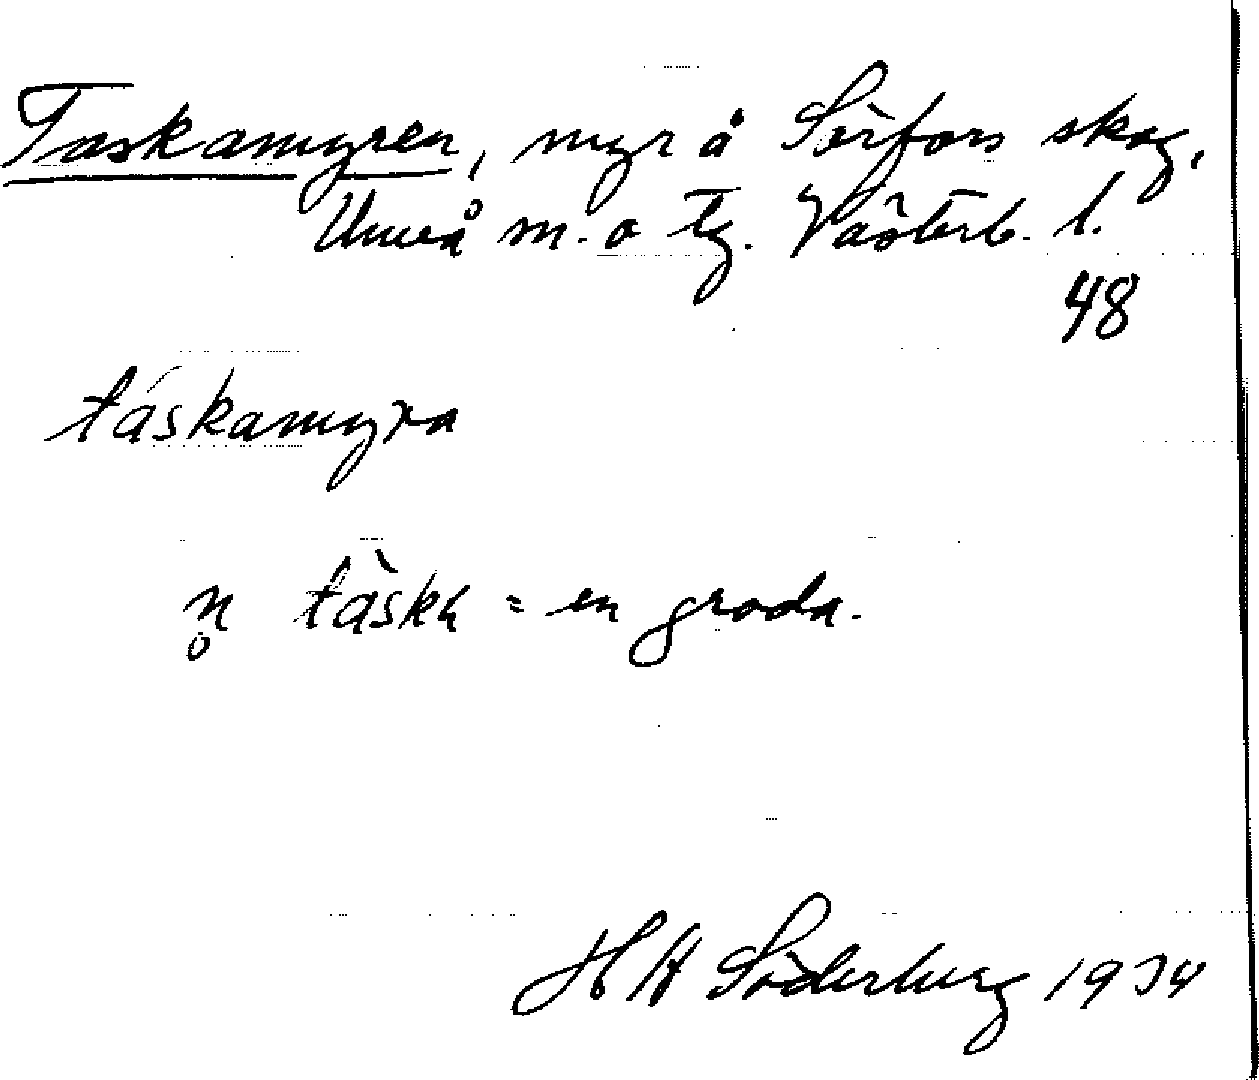 Taskamyren, myr å Sörfors skog,
Umeå m. o tg. Västerb. l.
48
táskamyra
n̥ tàska = en groda.
H A Söderberg 1934